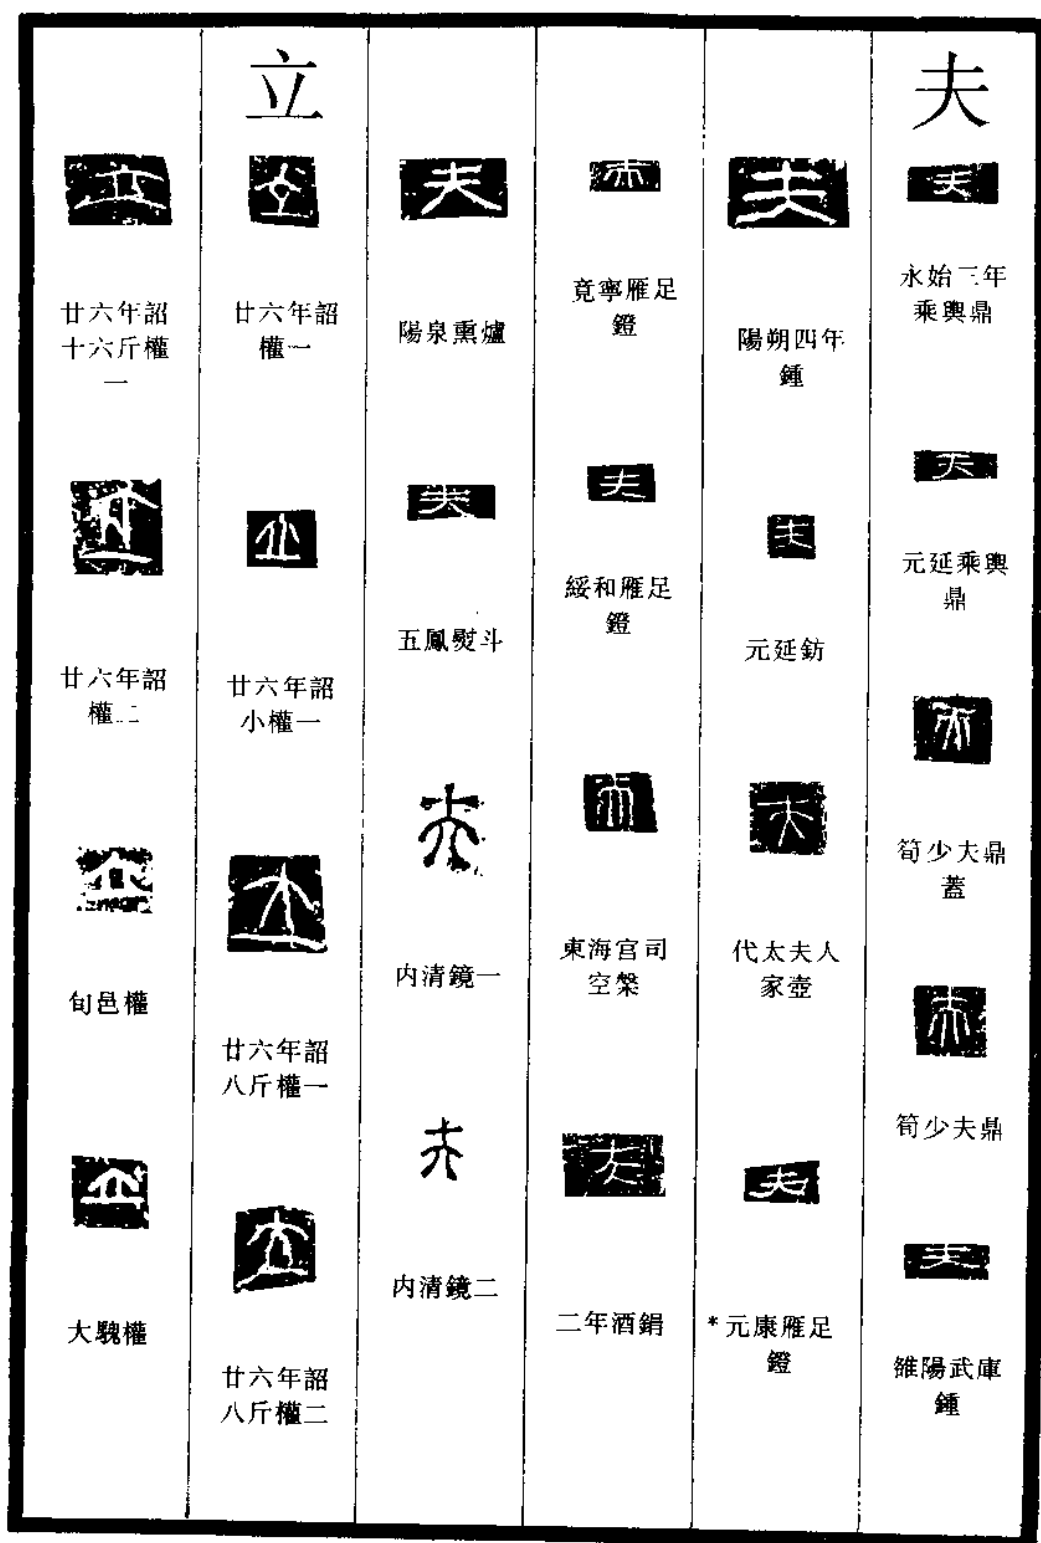 夫
永始三年
乘輿鼎
元延乘輿
鼎
筍少夫鼎
蓋
筍少夫鼎
雒陽武庫
鍾
陽朔四年
鍾
元延鈁
代太夫人
家壺
*元康雁足
鐙
竟寧雁足
鐙
綏和雁足
鐙
東海宮司
空槃
二年酒鋗
陽泉熏爐
五鳳熨斗
内清鏡一
内清鏡二
立
廿六年詔
權一
廿六年詔
小權一
廿六年詔
八斤權一
廿六年詔
八斤權二
廿六年詔
十六斤權
一
廿六年詔
權二
旬邑權
大騩權